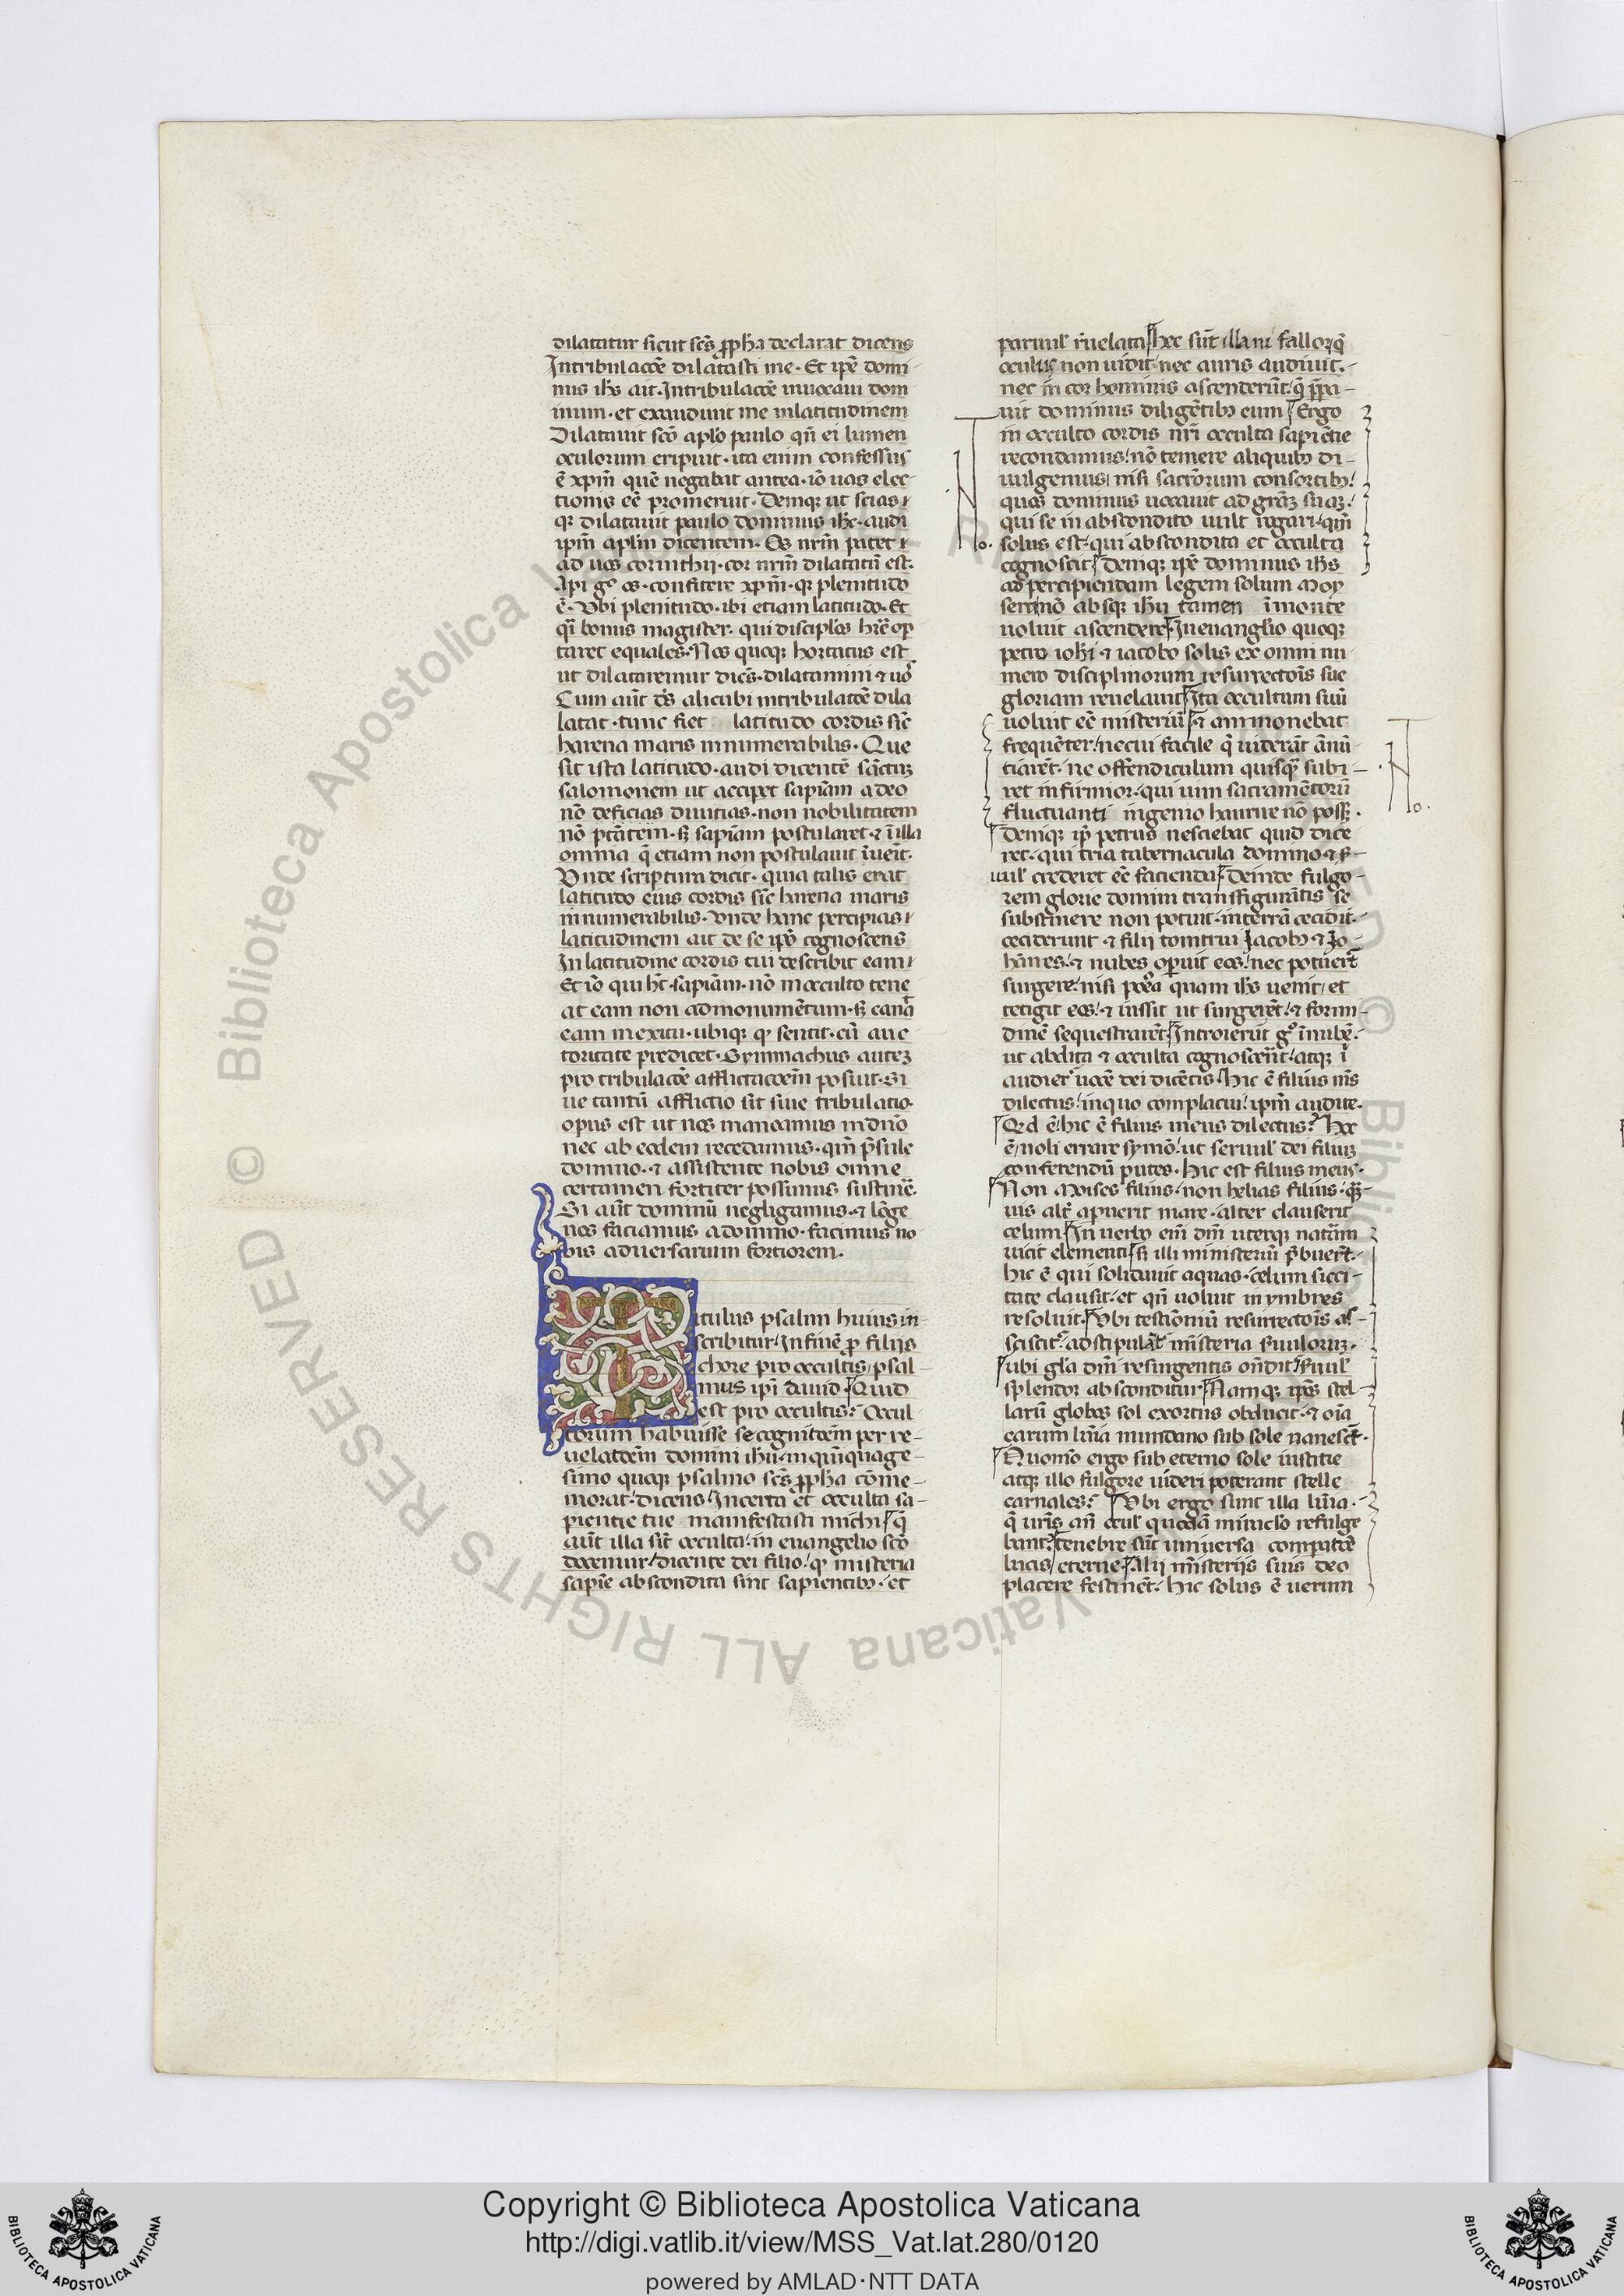 dilatatur sicut scs̄ ꝓph̄a declarat dicens
Intribulacōe dilatasti me · Et ip̄e domi-
nus ih̄s ait · Intribulacōe inuocaui dom
inum · et exaudiuit me inlatitudinem
Dilatauit scō apl̄o paulo qn̄ ei lumen
oculorum eripuit · ita enim confessus
ē xp̄m quē negabat antea · iō uas elec-
tionis eē promeruit · Deniqꝫ ut scias
qꝛ dilatauit paulo dominus ih̄c · audi
ip̄m apl̄m dicentem · Os nr̄m patet
ad uos corinthij · cor nr̄m dilatatū est ·
Api gͦ os · confitere xp̄m · qꝛ plenitudo
ē · Vbi plenitudo · ibi etiam latitudo · Et
qͣi bonus magister · qui discipl̄os hr̄e op
taret equales · Nos quoqꝫ hortatus est
ut dilataremur dicēs · dilatamini ⁊ uoˢ
Cum aūt dꝰs alicubi intribulacōe dila
latat · tunc fiet latitudo cordis sic̄
harena maris innumerabilis · Que
sit ista latitudo · audi dicentē sanctuꝫ
salomonem ut acciper sapiām a deo
nō deficias diuitias · non nobilitatem
nō potātem · sꝫ sapiām postularet · ⁊ ī illa
omnia q̄ etiam non postulauit īuenīt ·
Vnde scriptura dicit · quia talis erat
latitudo eius cordis sic̄ harena maris
innumerabilis · Vnde hanc percipias
latitudinem ait de se ip̄o cognoscens
In latitudine cordis tui describit eam
Et iō qui h̄t sapiām · nō inocculto tene
at eam non admonumētum · sꝫ canᵃt
eam in exitu · ubiqꝫ qꝫ sentit · cū auc
toritate predicet · Symmachus auteꝫ
pro tribulacōe afflictacōem posuit · Si
ue tantū afflictio sit siue tribulatio ·
opus est ut nos maneamus in dn̄o
nec ab eodem recedamus · qm̄ p̄sule
domino · ⁊ assistente nobis omne
certamen fortiter possumus sustinē̄ ·
Si aūt dominū negligamus · ⁊ lōge
nos faciamus a domino · facimus no
bis aduersarium fortiorem ·
Titulus psalmi huius in-
scribitur · Infinē ꝓ filijs
chore pro occultis psal-
mus ipi dauid · Quid
est pro occultis? Occul-
torum habuisse se cognitōem per re-
uelatōem domini ih̄u · in qn̄quage-
simo quoqꝫ psalmo scs̄ ꝓph̄a cōme-
morat · dicens · Incerta et occulta sa-
pientie tue manifestasti michi · q̄
aūt illa sīt occulta · in euangelio scō
docemur · dicente dei filio · qꝫ misteria
sapīe abscondita sint sapientibꝫ · et
paruul' r̄uelata · Hec sūt illa ni fallor q̄
oculus non uidit · nec auris audiuit · -
nec in cor hominis ascenderūt · q̄ p̄pa-
uit dominus diligētibꝫ eum · Ergo
in occulto cordis nr̄i occulta sapiētie
recondamus · nō temere aliquibꝫ di-
uulgemus · nisi sacrōrum consortibꝫ ·
quos dominus uocauit ad gr̄āꝫ suaꝫ ·
qui se in abscondito uult rogari · qm̄
solus est · qui abscondita et occulta
cognoscit · Deniqꝫ ip̄e dominus ih̄s
ad percipiendam legem solum Moy
sen nō absqꝫ ih̄u tamen ī monte
uoluit ascendere · In euangl̄io quoqꝫ
petro ioh̄i ⁊ iacobo solis ex omni nu
mero disciplinorum resurrectōis sue
gloriam reuelauit · Ita occultum suū
uoluit eē misteriū · ⁊ ammonebat
frequēter · necui facile q̄ uiderāt ānū-
tiarēt · ne offendiculum quisqꝫ subi-
ret infirmior · qui uim sacramētorū
fluctuanti ingenio haurire nō possꝫ ·
Deniqꝫ ip̄e petrus nesciebat quid dice
ret · qui tria tabernacula domino ⁊ s̄-
uul' crederet eē facienda · Deinde fulgo-
rem glorie domini transfigurātis se
substinere non potuit · interrā cecidit ·
ceciderunt ⁊ filij tonitrui Jacobꝫ ⁊ Jo-
hānes · ⁊ nubes oꝑuit eos · nec potuerūt
surgere · nisi postea quam ih̄s uenit · et
tetigit eos · ⁊ iussit ut surgerēt · ⁊ formi-
dinē sequestrarēt · Introierūt gͦ īnubē ·
ut abdita ⁊ occulta cognoscerēt · atqꝫ ī
audier̄ uocē dei dicētis · Hic ē filius m̄s
dilectus · inquo complacui · ipm̄ audite ·
Qd ē · hic ē filius meus dilectus? Hoc
ē · noli errare symō · ut seruul' dei filiuꝫ
conferendū putes · Hic est filius meus ·
Non Moises filius · non helias filius · qͣꝫ-
uis alt̄ apuerit mare · alter clauserit
celum · In uerbo em̄ dn̄i uterqꝫ naturā
uicit elementi · si illi ministeriū p̄buert̄ · -
hic ē qui solidauit aquas · celum sicci-
tate clausit · et qn̄ uoluit in ymbres
resoluit · Vbi testiōniū resurrectōis as-
sciscitʳ · adstipulāt misteria suulorꝫ ·
ubi gl̄a dn̄i resurgentis on̄dit · suul'
splendor absconditur · Namqꝫ ipos stel-
larū globos sol exortus obducit · ⁊ oīa
earum lūīa mundano sub sole uanesct̄ ·
Quomō ergo sub eterno sole iustitie
atqꝫ illo fulgore uideri poterant stelle
carnales? Vbi ergo sunt illa lūīa · -
q̄ uris an̄ ocul' quodā miracl̄o refulge
bant? tenebre sūt uniuersa computōe
lucis eterne · Alij misterijs suis deo
placere festinēt · hic solus ē uerum
No.
No.
Copyright © Biblioteca Apostolica Vaticana
http://digi.vatlib.it/view/MSS_Vat.lat.280/0120
powered by AMLAD · NTT DATA
BIBLIOTECA APOSTOLICA VATICANA
BIBLIOTECA APOSTOLICA VATICANA
© Biblioteca Apostolica Vaticana ALL RIGHTS RESERVED
© Biblioteca Apostolica Vaticana ALL RIGHTS RESERVED